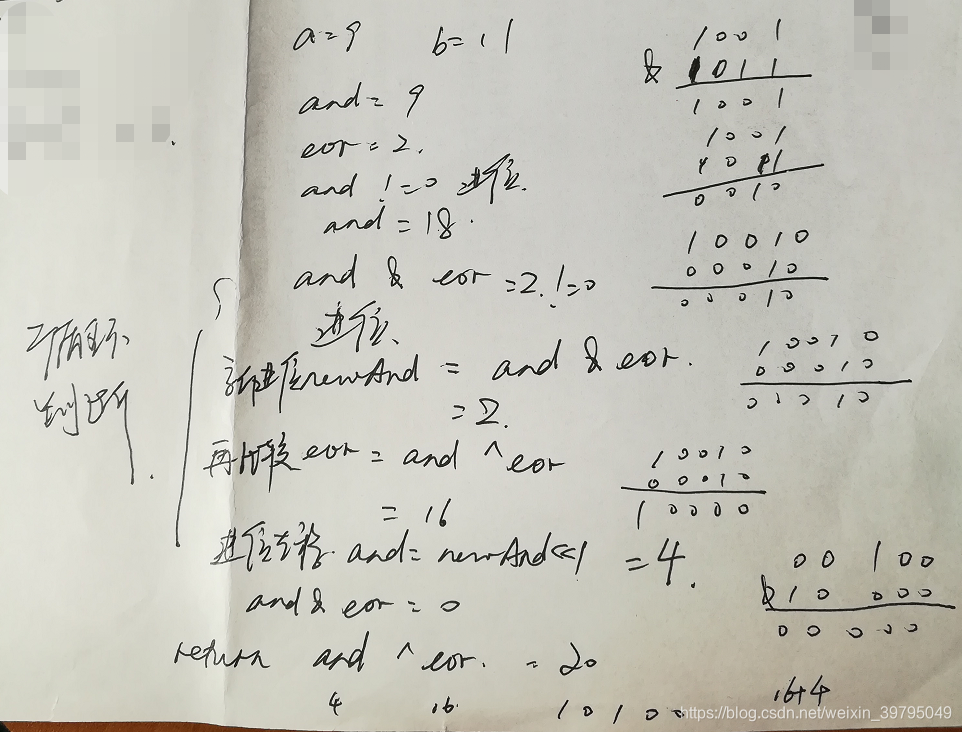 a=9 b=11
and=9
eor=2.
and !=0 进位.
and=18.
and & eor =2.!=0
进位、
newAnd = and & eor.
=2.
再比较 eor = and ^ eor
= 16
进位左移. and= newAnd<<1 =4.
and & eor = 0
return and ^ eor. = 20
4 16 10100 16+4
循环
判断.
1001
& 1011
1001
1001
1011
0010
10010
00010
00010
10010
00010
00010
10010
00010
10000
00 100
& 10 000
00 000
https://blog.csdn.net/weixin_39795049